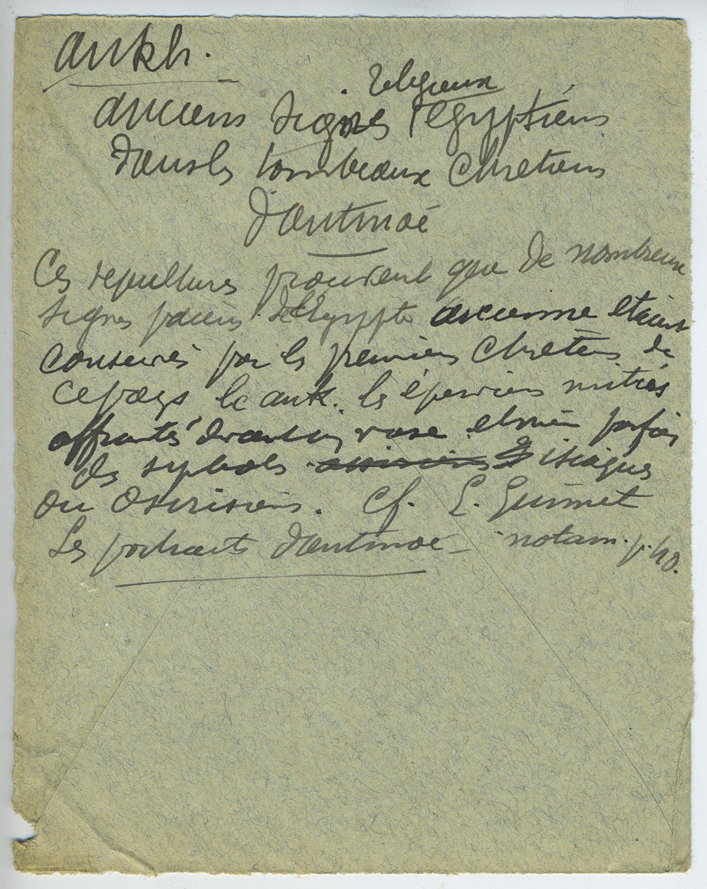 ankh.
religieux
anciens signes Egyptiens
dans les tombeaux Chretiens
d'antinoé
Ces sepultures prouvent que de nombreux
signes paiens de l'Egypte ancienne etaient
conservés par les premiers Chretiens de
ce pays le ank. les éperviers mitrés
affrontés devant un vase et même parfois
des symbols isiaques
ou osirisiens. Cf. E. Guimet
Les portraits d'antinoé - notam. p. 40.